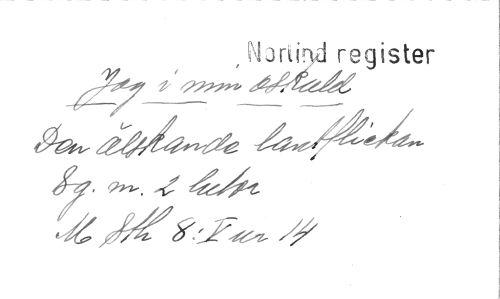 Norlind register
Jag i min oskuld
Den älskande lantflickan
8 g. m. 2 betor
M Sth 8: V ur 14